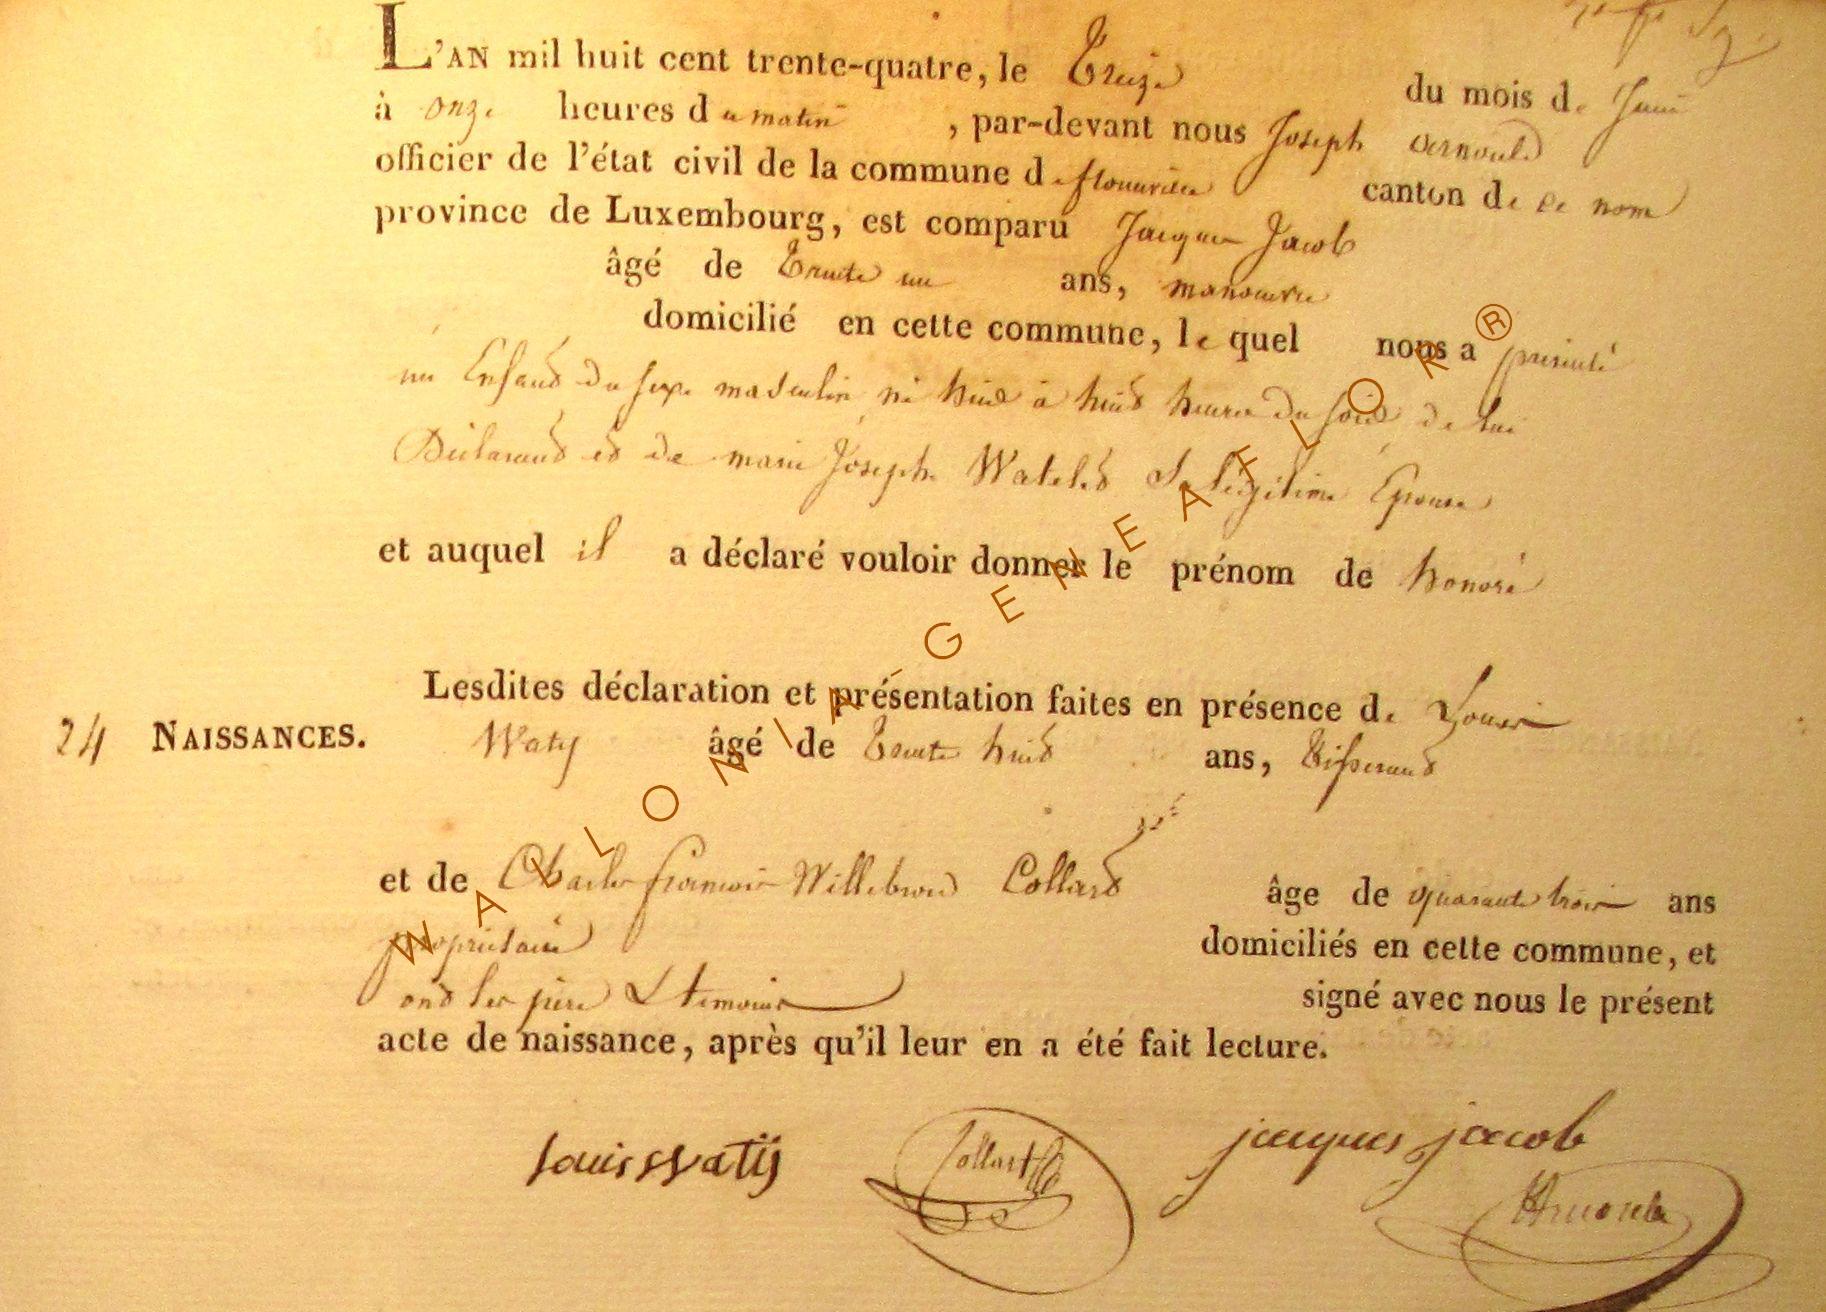 L'AN mil huit cent trente-quatre, le Treize du mois de Juin
à onze heures du matin, par-devant nous Joseph arnould
officier de l'état civil de la commune de florenville canton de ce nom
province de Luxembourg, est comparu Jacques Jacob
âgé de Trente un ans, manoeuvre
domicilié en cette commune, le quel nous a presenté
un Enfant du sexe masculin né hier à huit heures du soir de lui
Déclarant et de marie Joseph Watelet Sa légitime Epouse
et auquel il a déclaré vouloir donner le prénom de honoré
Lesdites déclaration et présentation faites en présence de Louis
24 NAISSANCES. Waty âgé de Trente huit ans, Tisserand
et de Charles francois Willebrord Collard âge de quarante trois ans
propriétaire domiciliés en cette commune, et
ont les père & temoins signé avec nous le présent
acte de naissance, après qu'il leur en a été fait lecture.
louis Watÿ Collart jacques jacob
WALLONIA-GENEAFLOR®